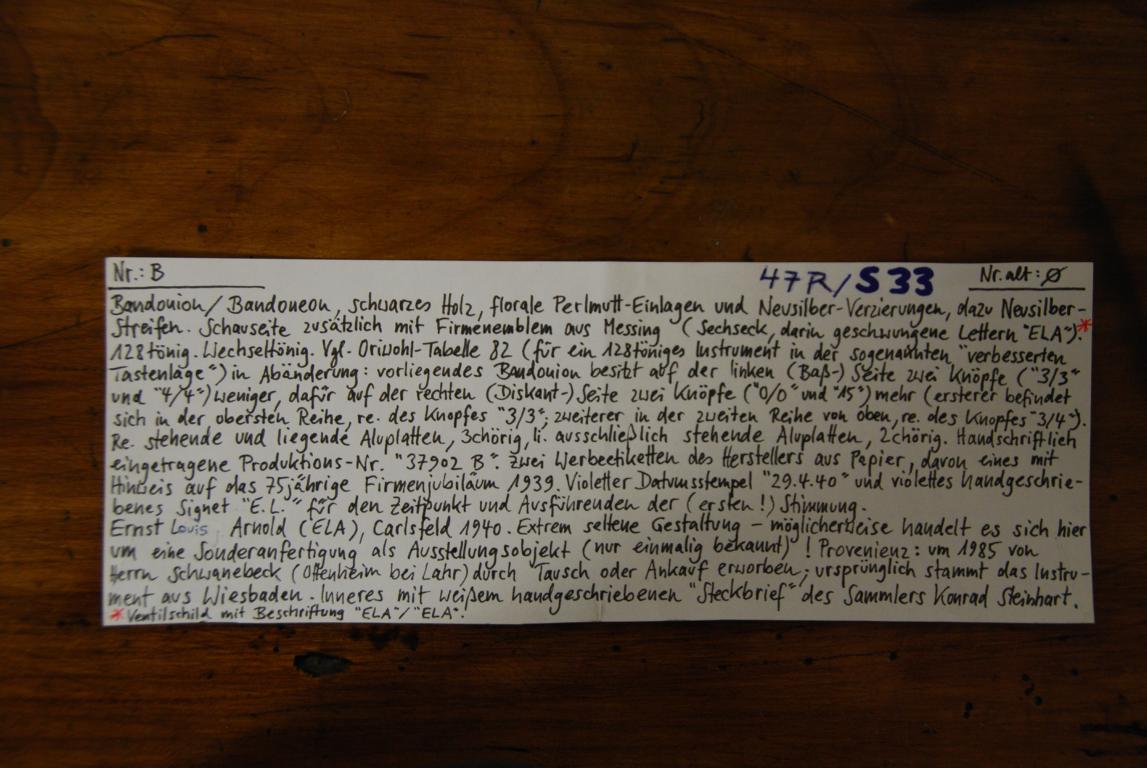 Nr.: B
47R/S33
Nr. alt: Ø
Bandonion/Bandoneon, schwarzes Holz, florale Perlmutt-Einlagen und Neusilber-Verzierungen, dazu Neusilber-
Streifen. Schauseite zusätzlich mit Firmenemblem aus Messing (Sechseck, darin geschwungene Lettern "ELA").*
128tönig. Wechseltönig. Vgl. Oriwohl-Tabelle 82 (für ein 128töniges Instrument in der sogenannten "verbesserten
Tastenlage") in Abänderung: vorliegendes Bandonion besitzt auf der linken (Baß-) Seite zwei Knöpfe ("3/3"
und "4/4") weniger, dafür auf der rechten (Diskant-) Seite zwei Knöpfe ("0/0" und "15") mehr (ersterer befindet
sich in der obersten Reihe, re. des Knopfes "3/3", zweiterer in der zweiten Reihe von oben, re. des Knopfes "3/4").
Re. stehende und liegende Aluplatten, 3chörig, li. ausschließlich stehende Aluplatten, 2chörig. Handschriftlich
eingetragene Produktions-Nr. "37902 B". Zwei Werbeetiketten des Herstellers aus Papier, davon eines mit
Hinweis auf das 75jährige Firmenjubiläum 1939. Violetter Datumsstempel "29.4.40" und violettes handgeschrie-
benes Signet "E.L." für den Zeitpunkt und Ausführenden der (ersten!) Stimmung.
Ernst Louis Arnold (ELA), Carlsfeld 1940. Extrem seltene Gestaltung – möglicherweise handelt es sich hier
um eine Sonderanfertigung als Ausstellungsobjekt (nur einmalig bekannt)! Provenienz: um 1985 von
Herrn Schwanebeck (Offenheim bei Lahr) durch Tausch oder Ankauf erworben; ursprünglich stammt das Instru-
ment aus Wiesbaden. Inneres mit weißem handgeschriebenen "Steckbrief" des Sammlers Konrad Steinhart.
* Ventilschild mit Beschriftung "ELA"/"ELA".